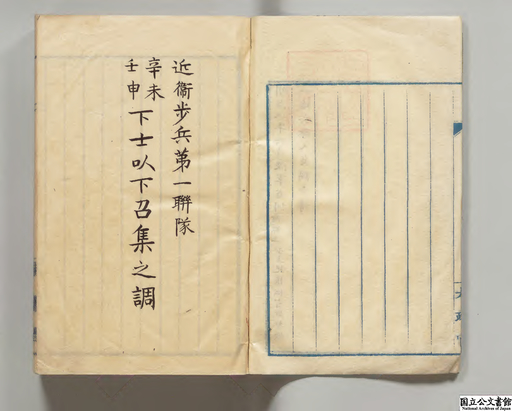 近衞步兵第一聯隊
辛未
壬申
下士以下召集之調
国立公文書館
National Archives of Japan